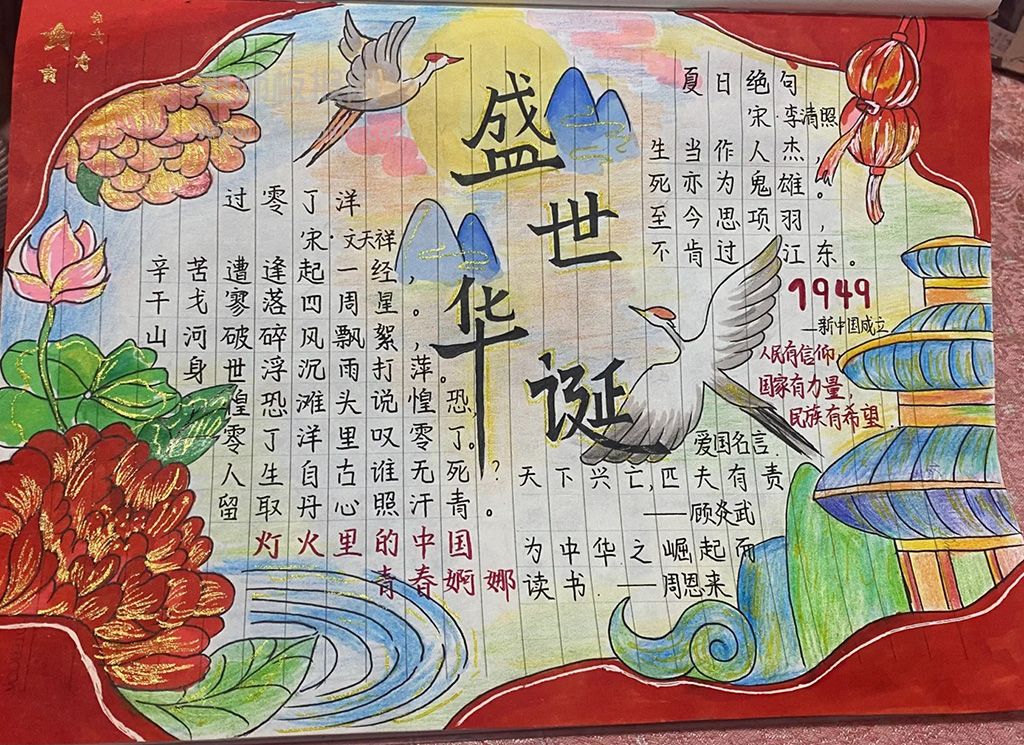 盛世华诞
过零丁洋
宋·文天祥
辛苦遭逢起一经，
干戈寥落四周星。
山河破碎风飘絮，
身世浮沉雨打萍。
惶恐滩头说惶恐，
零丁洋里叹零丁。
人生自古谁无死？
留取丹心照汗青。
灯火里的中国
青春婀娜
夏日绝句
宋·李清照
生当作人杰，
死亦为鬼雄。
至今思项羽，
不肯过江东。
1949
—新中国成立
人民有信仰，
国家有力量，
民族有希望.
爱国名言.
天下兴亡,匹夫有责
——顾炎武
为中华之崛起而
读书.——周恩来